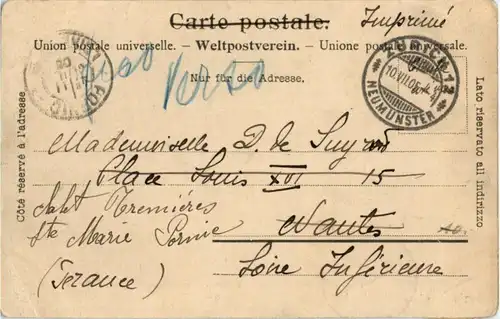 Carte postale. Imprimé
Union postale universelle. – Weltpostverein. – Unione postale universale.
Nur für die Adresse.
verso
ZÜRICH 12
10.VII.05
NEUMÜNSTER
PORNIC
Côté réservé à l'adresse
Lato riservato all indirizzo
Mademoiselle D. de
Place Louis XVI 15
Nantes
Loire Inférieure
Ste Marie Pornic
(France)